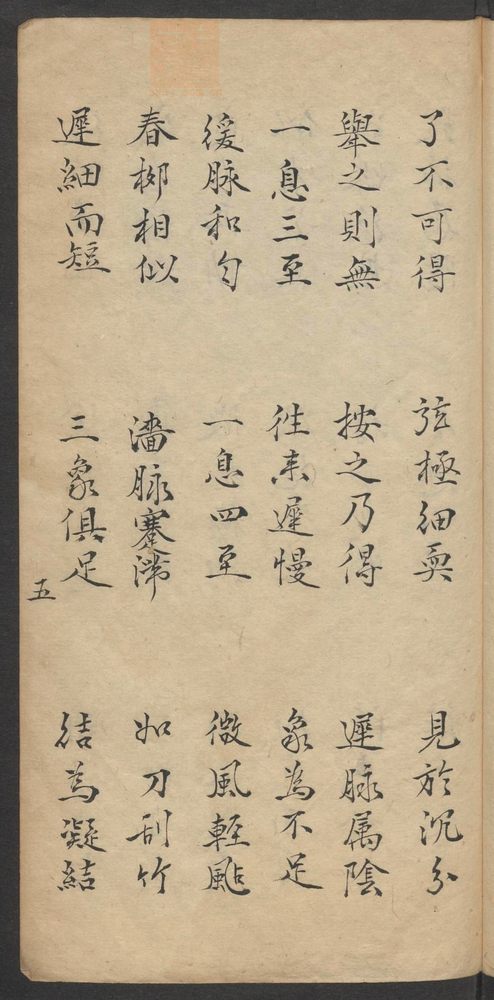 了不可得 弦極細耎 見於沉分
擧之則無 按之乃得 遲脉属陰
一息三至 徃来遲慢 象為不足
緩脉和匀 一息四至 微風輕颭
春栁相似 濇脉蹇滯 如刀刮竹
遲細而短 三象俱足 結為凝結
五